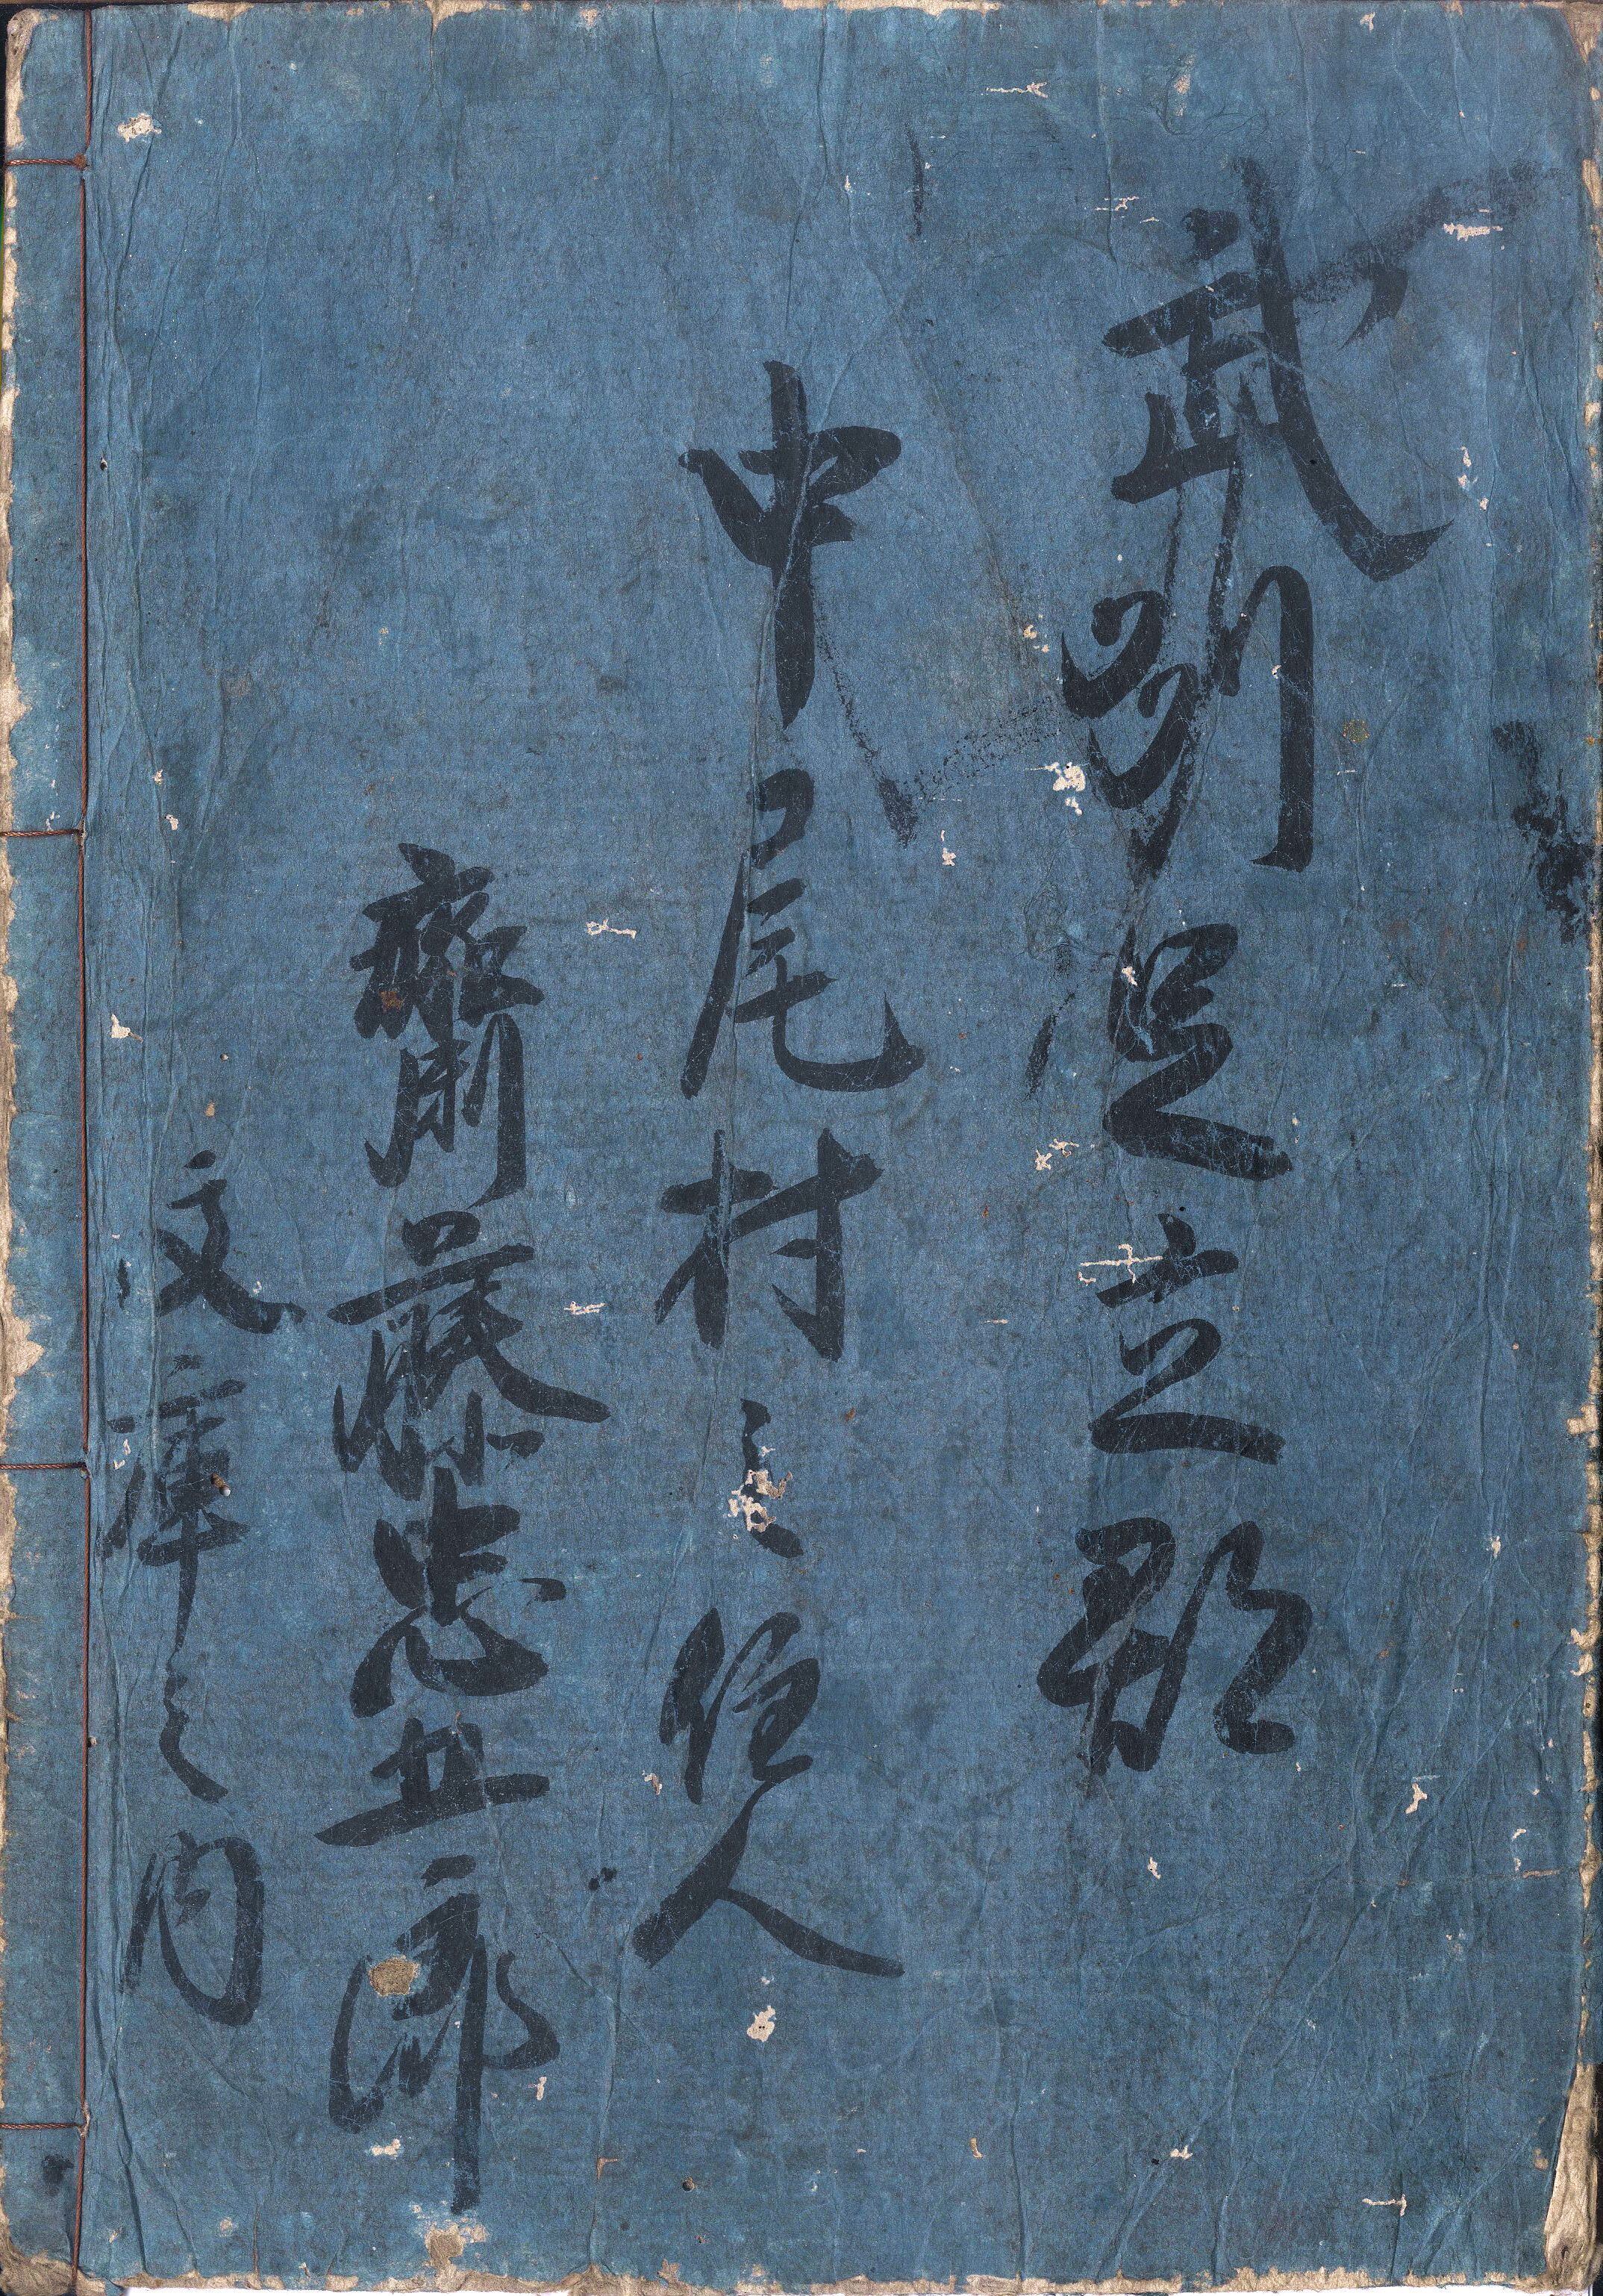 武州足立郡
中尾村之住人
齊藤忠五郎
文庫之内